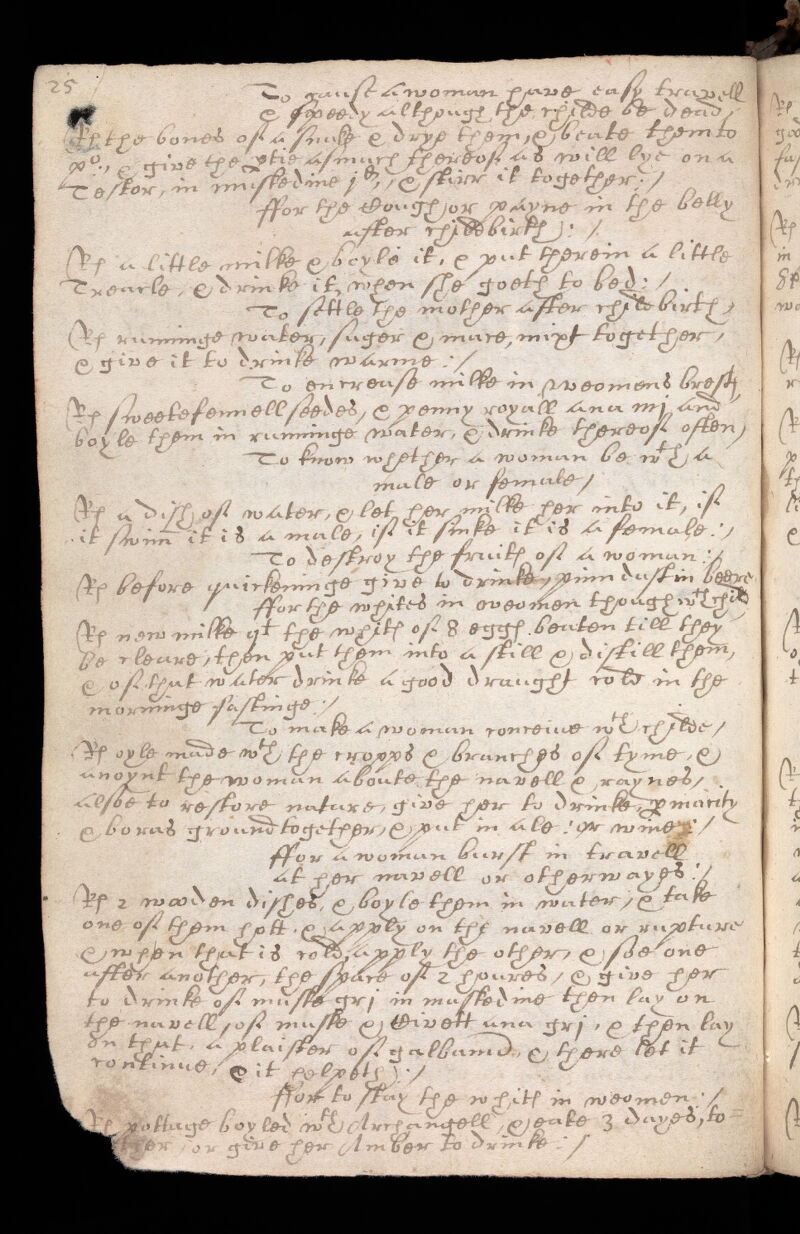 25
To cause a woman have easy travell
& speedy although the childe be dead /
Rx the bones of a snake & drye them, & beate them to
po:, & give the ptie asmuch thereof as will lye on a
Testor, in muskedine j, & stirr it together : /
ffor the Cough or payne in the belly
after childbirth : /
Rx a little milke & boyle it, & put therein a little
Treacle, & drinke it, when she goeth to bed : /
To settle the mother after childbirth /
Rx runninge water, suger & mace, mixt together,
& give it to drinke warme : /
To encrease milke in weomens brests
Rx sweete fennell seedes, & penny royall ana mj and
boyle them in runninge water, & drinke thereof often /
To know whether a woman be wth a
male or female /
Rx a dish of water, & let her milke her into it, if
it swim it is a male, if it sinke it is a female : /
To destroy the fruith of a woman : /
Rx before quickeninge give to drinke, pinn dust in beere
ffor the whites in weomen though wth child
Rx new milke qt the whith of 8 eggs beaten till they
be cleare, then put them into a still & distill them,
& of that water drinke a good draught cold in the
morninge fastinge : /
To make a woman conceive wth childe /
Rx oyle made wth the cropps & branches of tyme, &
anoynt the woman aboute the navell & raynes /
alsoe to restore nature, give her to drinke, pmacity
& boras ground together, & put in ale : or wine : /
ffor a woman burst in travell
at her navell or otherwayes : /
Rx 2 wooden dishes, & boyle them in water, & take
one of them hott, & apply on the navell or rupture
& when that is cold, apply the other, & soe one
after another, the space of 2 houres, & give her
to drinke of muske grj in muskedine then lay on
the navell, of muske & Civett ana grj, & then lay
on that, a plaister of galbanum, & there let it
continue, & it helpeth : /
ffor to stay the whith in weomen : /
Rx pottage boyled wth Archangell, & eate 3 dayes, to=
or give her Amber to drinke : /